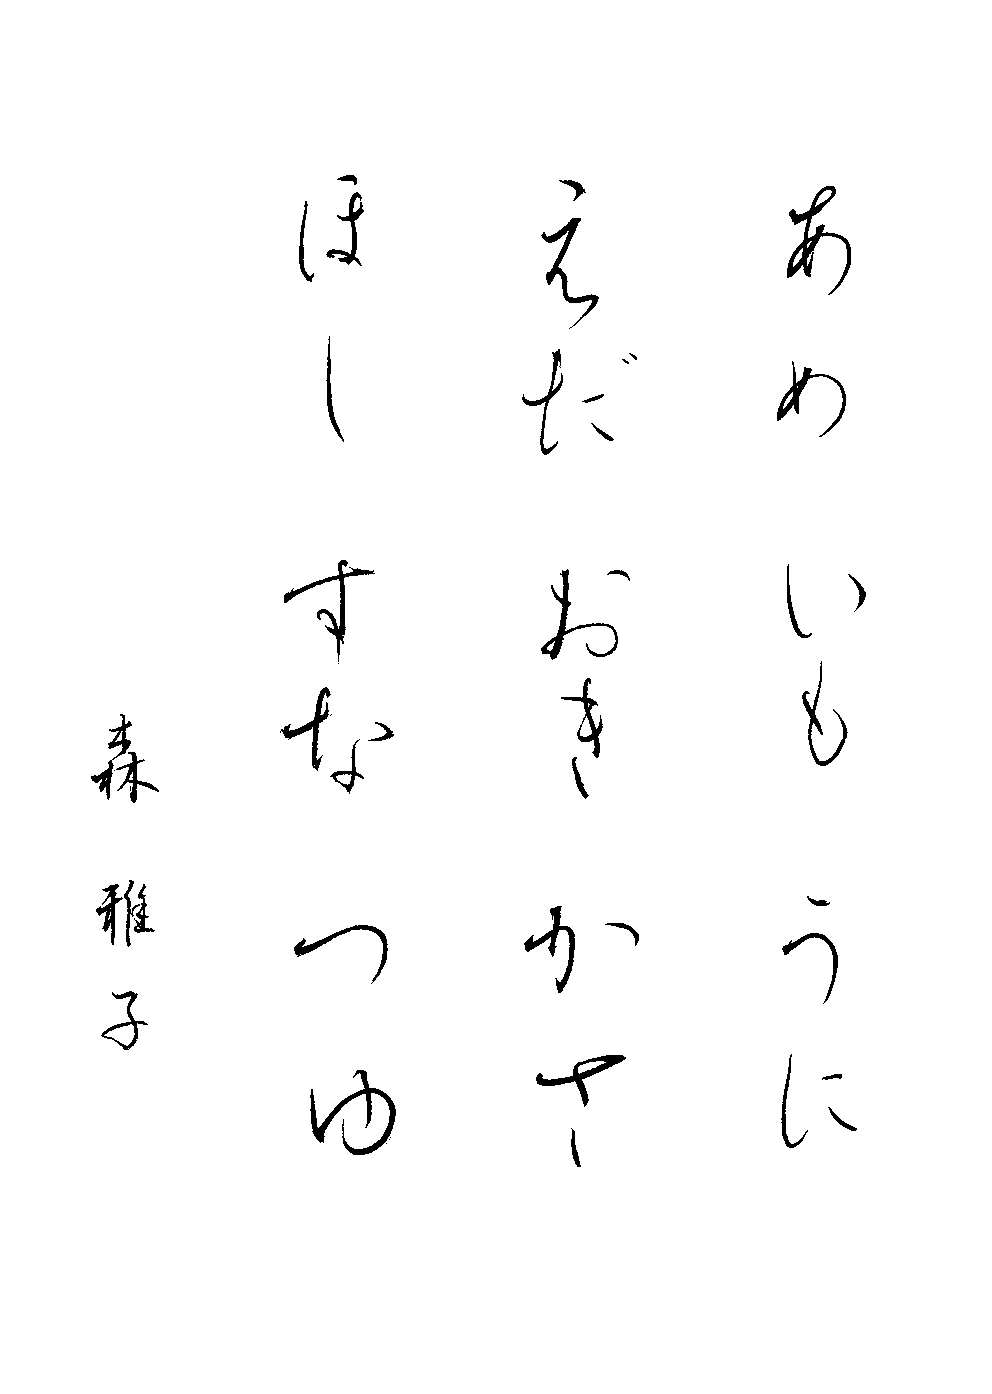 あめ いも うに
えだ おき かさ
ほし すな つゆ
森雅子